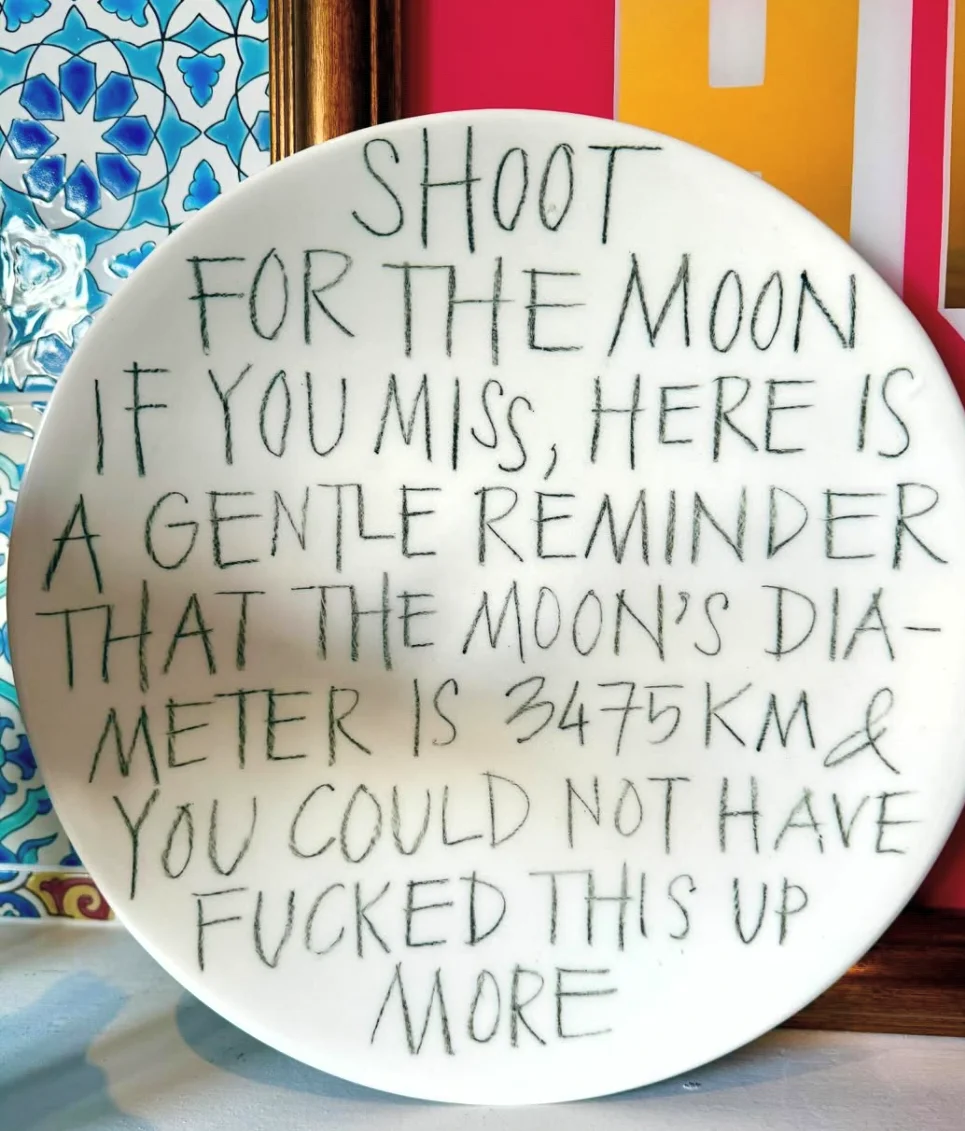 SHOOT
FOR THE MOON
IF YOU MISS, HERE IS
A GENTLE REMINDER
THAT THE MOON'S DIA-
METER IS 3475KM &
YOU COULD NOT HAVE
FUCKED THIS UP
MORE